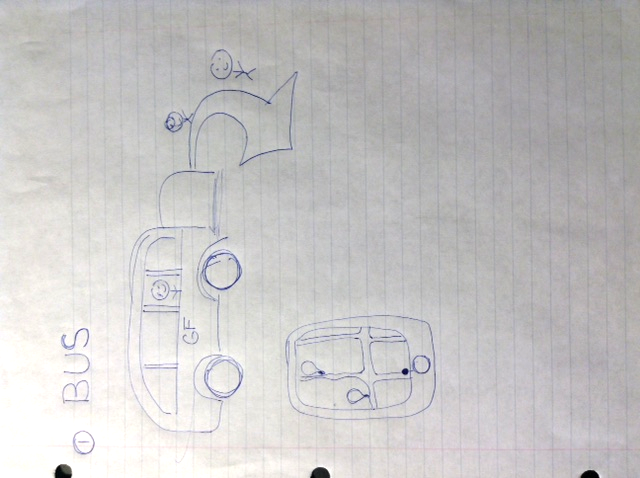 ① BUS
GF